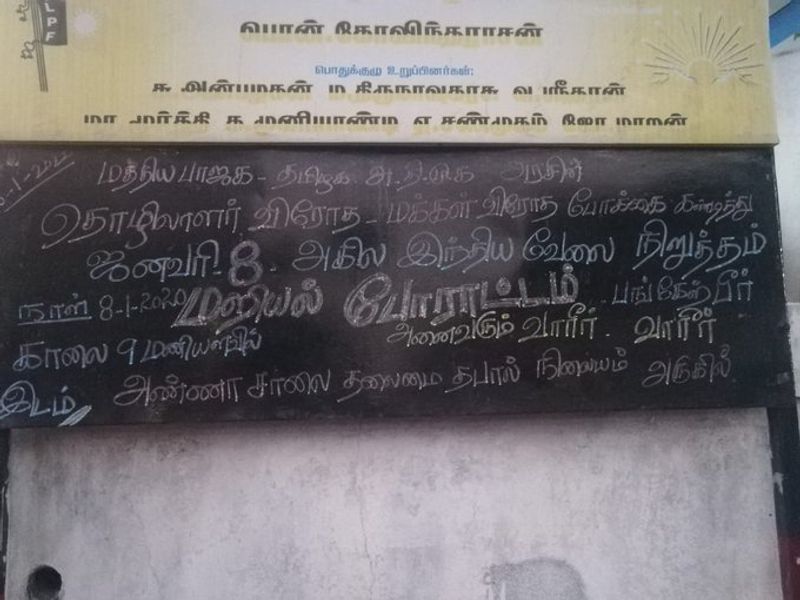 LPF
பொன்.கோவிந்தராசன்
பொதுக்குழு உறுப்பினர்கள்:
சு அன்பழகன் ம திருநாவுகரசு வ ஸ்ரீதரன்
மா மூர்த்தி க முனியாண்டி ஏ சண்முகம் ஜோ மாறன்
மத்திய பாஜக - தமிழக அ.தி.மு.க அரசின்
தொழிலாளர் விரோத - மக்கள் விரோத போக்கை கண்டித்து
ஜனவரி - 8 - அகில இந்திய வேலை நிறுத்தம்
நாள் 8-1-2020 மறியல் போராட்டம் பங்கேற்பீர்
காலை 9 மணியளவில் அனைவரும் வாரீர் - வாரீர்
இடம் அண்ணா சாலை தலைமை தபால் நிலையம் அருகில்